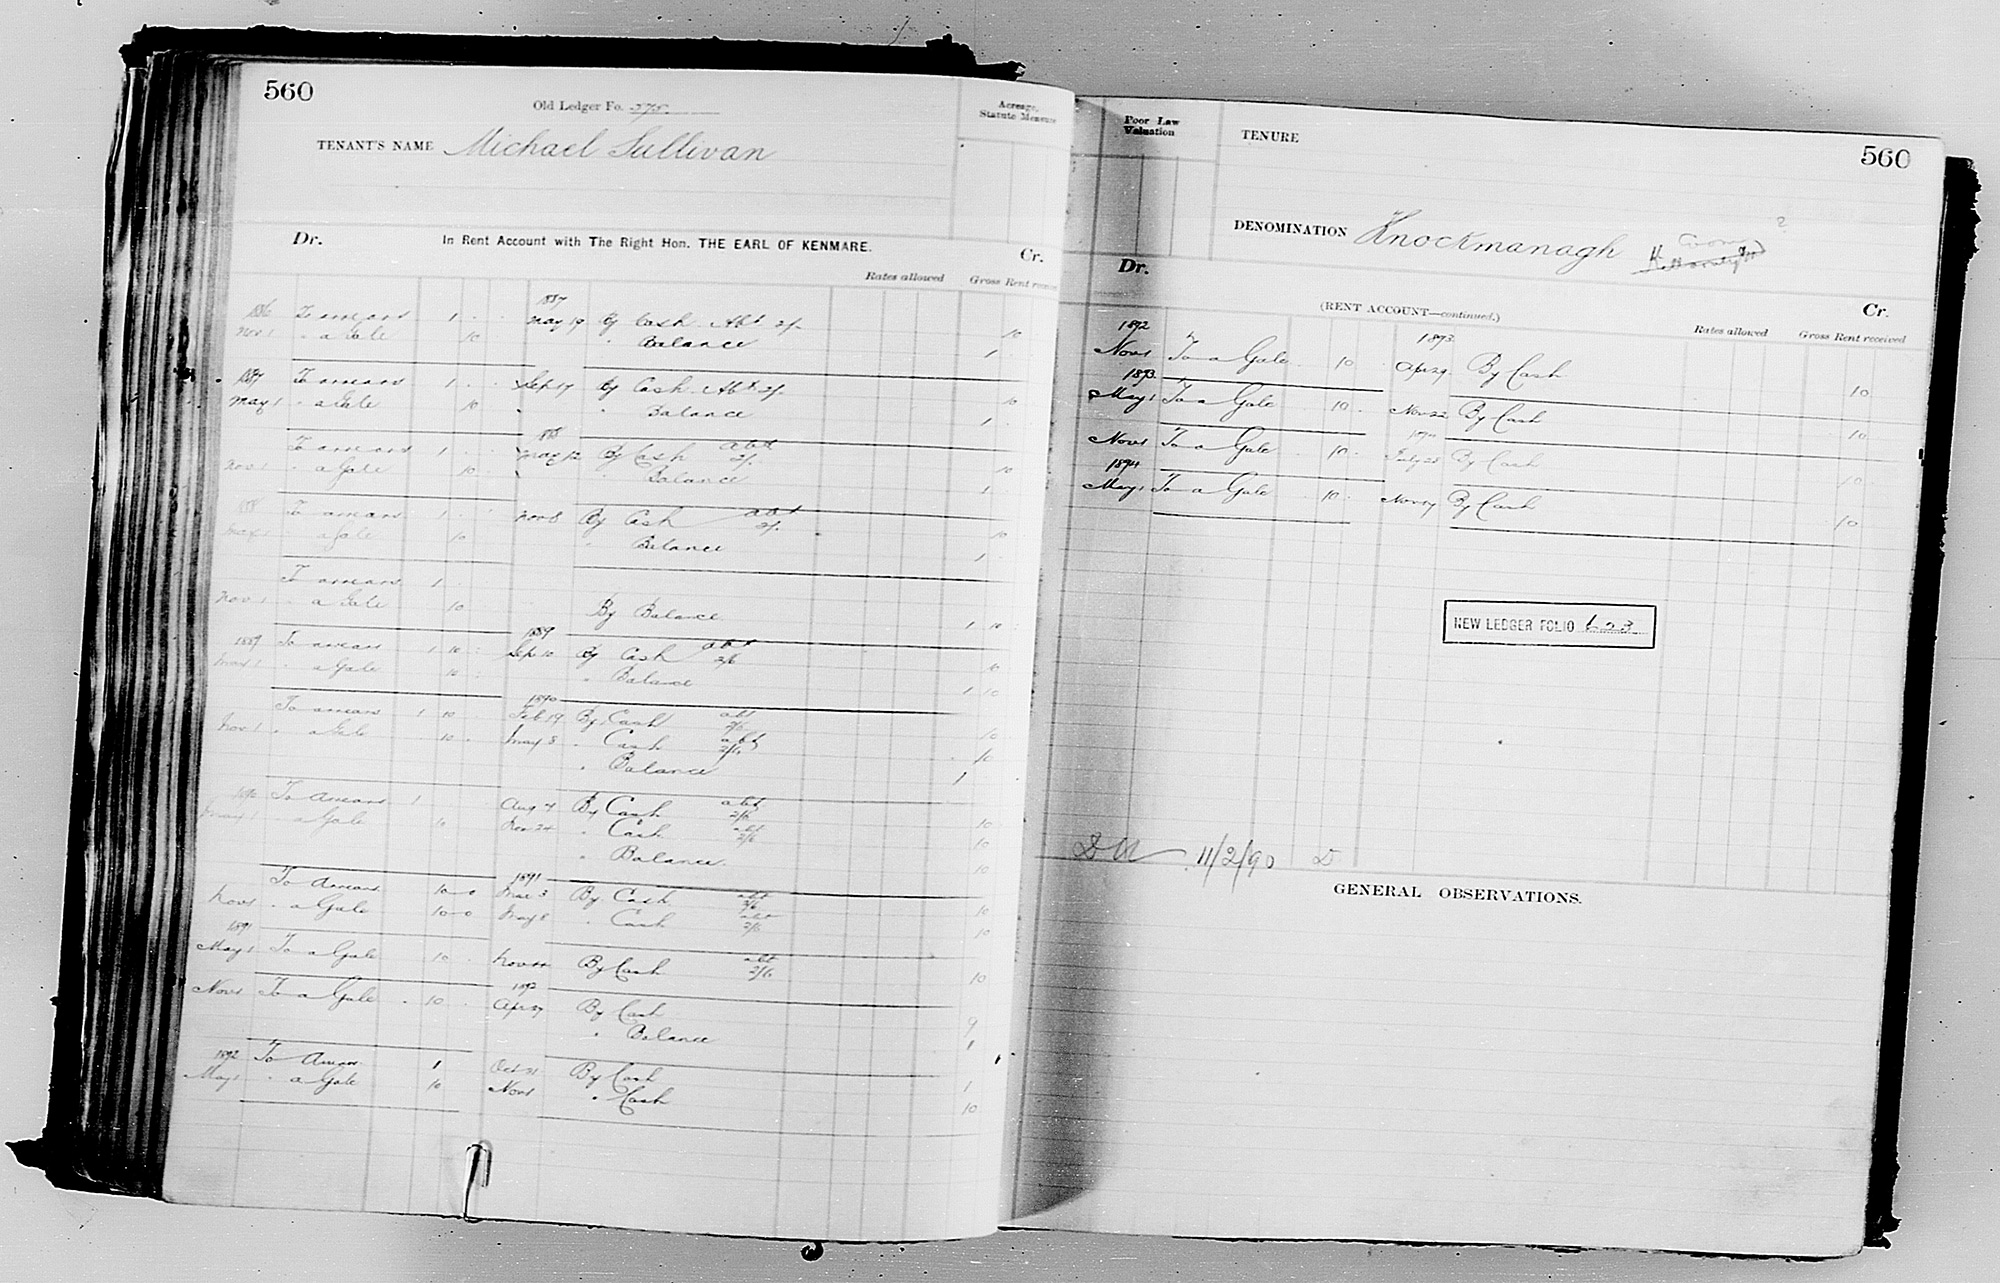 560
Old Ledger Fo. 575
Acreage, Statute Measure
TENANT'S NAME Michael Sullivan
Dr. In Rent Account with The Right Hon. THE EARL OF KENMARE. Cr.
Rates allowed Gross Rent
1886 To arrears 1 1887 May 19 By Cash Abt 2/- 10
Nov 1 " a Gale 10 " Balance 1
1887 To arrears 1 Sep 17 By Cash Abt 2/- 10
May 1 " a Gale 10 " Balance 1
To arrears 1 1888 May 12 By Cash abt 2/- 10
Nov 1 " a Gale 10 " Balance 1
1888 To arrears 1 Nov 8 By Cash abt 2/- 10
May 1 " a Gale 10 " Balance 1
To arrears 1
Nov 1 " a Gale 10 By Balance 1 10
1889 To arrears 1 10 1889 Sep 10 By Cash abt 2/6 10
May 1 " a Gale 10 " Balance 1 10
To arrears 1 10 1890 Feb 19 By Cash abt 2/6 10
Nov 1 " a Gale 10 May 8 " Cash abt 2/6 10
" Balance 1
1890 To Arrears 1 Aug 4 By Cash abt 2/6 10
May 1 " a Gale 10 Nov 24 " Cash abt 2/6 10
" Balance 10
To Arrears 10-0 1891 Mar 3 By Cash abt 2/6 10
Nov 1 " a Gale 10-0 May 8 " Cash abt 2/6 10
1891
May 1 To a Gale 10 Nov By Cash abt 2/6 10
Nov 1 To a Gale 10 1892 Apr 29 By Cash 9
" Balance 1
1892 To Arrears 1 Oct 31 By Cash 1
May 1 " a Gale 10 Nov 1 " Cash 10
Poor Law Valuation
TENURE
560
DENOMINATION Knockmanagh ?
Dr. (RENT ACCOUNT—continued.) Cr.
Rates allowed Gross Rent received
1892 1893
Nov 1 To a Gale 10 Apr 29 By Cash 10
1893
May 1 To a Gale 10 Nov 22 By Cash 10
Nov 1 To a Gale 10 July 28 By Cash 10
1894
May 1 To a Gale 10 Nov 17 By Cash 10
NEW LEDGER FOLIO 623
11/2/90 D
GENERAL OBSERVATIONS.